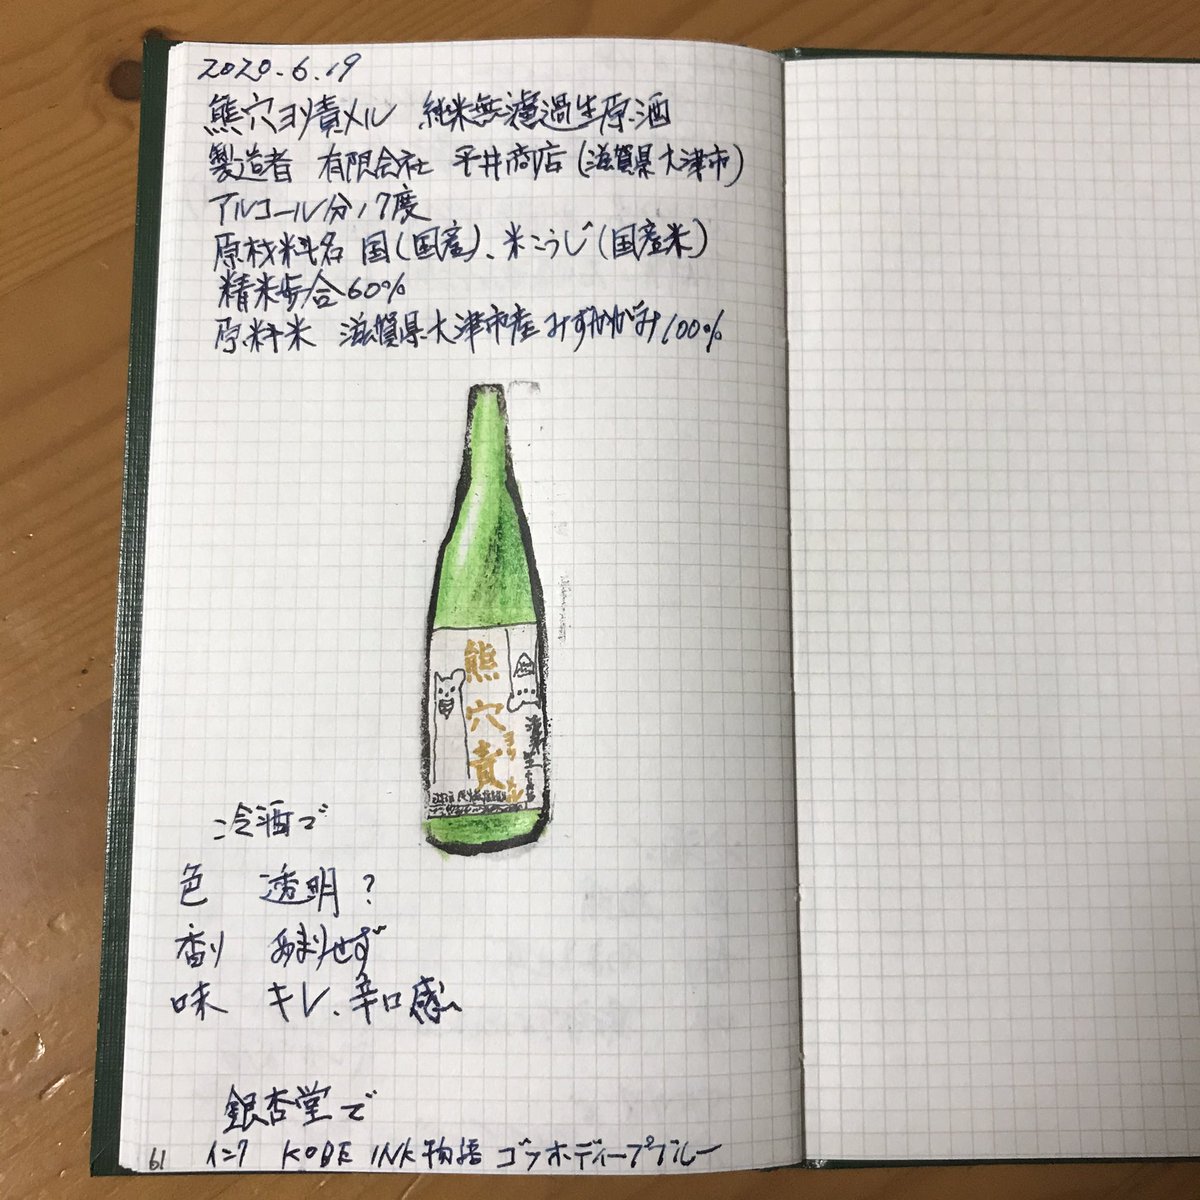 2020.6.19
熊穴ヨリ責メル 純米無濾過生原酒
製造者 有限会社 平井商店(滋賀県大津市)
アルコール分17度
原材料名 国(国産)、米こうじ(国産米)
精米歩合60%
原料米 滋賀県大津市産みずかがみ100%
熊
穴
ヨリ
責
冷酒で
色 透明?
香り あまりせず
味 キレ、辛口感
銀杏堂で
61 インク KOBE INK物語 ゴッホディープブルー